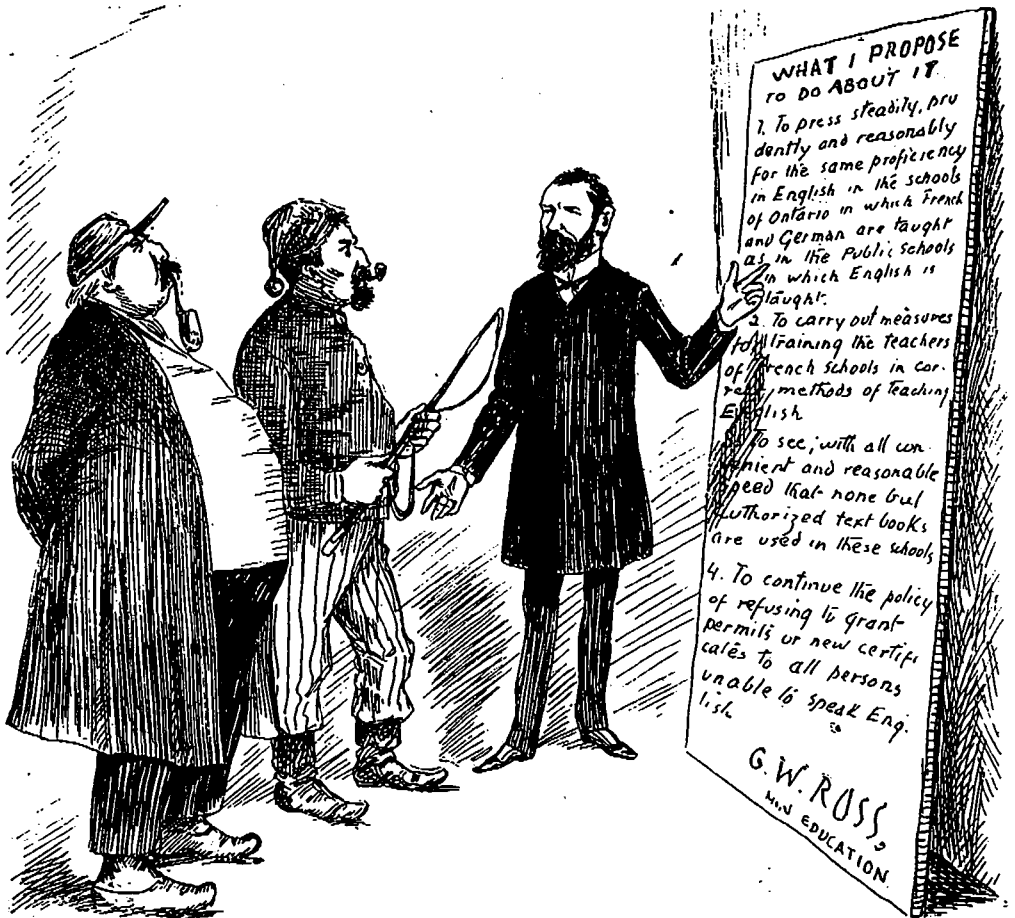 WHAT I PROPOSE
TO DO ABOUT IT
1. To press steadily, pru
dently and reasonably
for the same proficiency
in English in the schools
of Ontario in which French
and German are taught
as in the Public Schools
in which English is
taught.
2. To carry out measures
training the teachers
of French schools in cor-
methods of teaching
English
To see, with all con-
venient and reasonable
speed that none but
authorized text books
are used in these schools,
4. To continue the policy
of refusing to grant
permits or new certifi
cates to all persons
unable to speak Eng.
lish
G. W. ROSS,
MIN EDUCATION